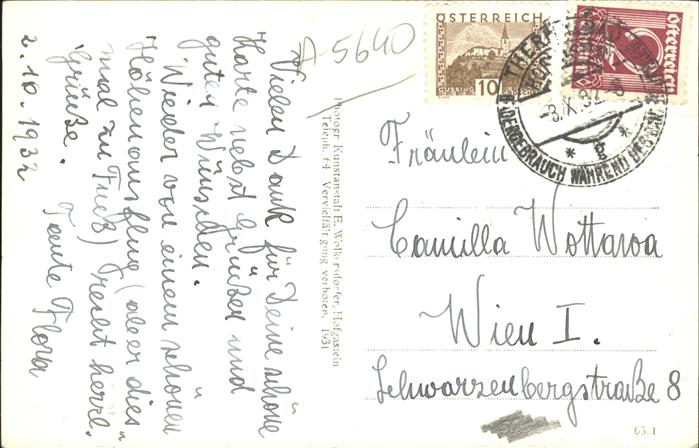 Vielen Dank für Deine schöne
Karte nebst Grüßen und
guten Wünschen.
Wieder von einem schönen
Höhenausflug (aber dies„
mal zu Fuß) recht herzl.
Grüße.
Tante Flora
2.10.1932
A 5640
Photogr. Kunstanstalt E. Wolkersdorfer, Hofgastein
Teleph. 64 Vervielfältigung verboten. 1931
ÖSTERREICH
10
GÜSSING
GROSCHEN
Österreich
-3.X.32-8
* g *
Fräulein
Camilla Wottawa
Wien I.
Schwarzenbergstraße 8
63.1